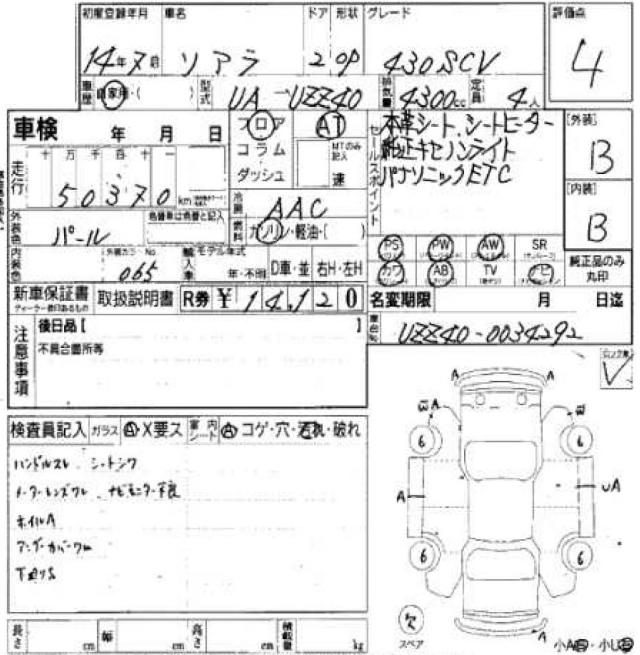 初度登録年月 車名 ドア 形状 グレード 評価点
14年7月 ソアラ 2 OP 430SCV 4
車歴 自家用・( ) 型式 UA-UZZ40 排気量 4300cc 定員 4人
車検 年 月 日 フロア AT 本革シート、シートヒーター [外装]
走行 十 万 千 百 十 一 コラム MTのみ記入 セールスポイント 純正キセノンライト B
50370km ダッシュ 速 パナソニックETC [内装]
冷房 AAC B
外装色 パール 色替車は色替と記入 燃料 ガソリン・軽油・( )
PS PW AW SR 純正品のみ
カワ AB TV ナビ 丸印
内装色 外装カラーNo. 065 輸入車 モデル年式 年・不明 D車・並 右H・左H
新車保証書 取扱説明書 R券 ¥ 14,120 名変期限 月 日迄
ディーラー捺印あるもの
注意事項 後日品[ ] 車台No. UZZ40-0034292
不具合箇所等
検査員記入 ガラス A X要ス 室内シート A コゲ・穴・汚れ・破れ
ハンドルスレ シートシワ
メーターレンズワレ ナビモニター不良
ホイルA
アンダーカバーワレ
下廻りS
A A
A
6 6
A UA
6 6
欠
スペア
A
小A・小U
長さ cm 幅 cm 高さ cm 積載量 kg